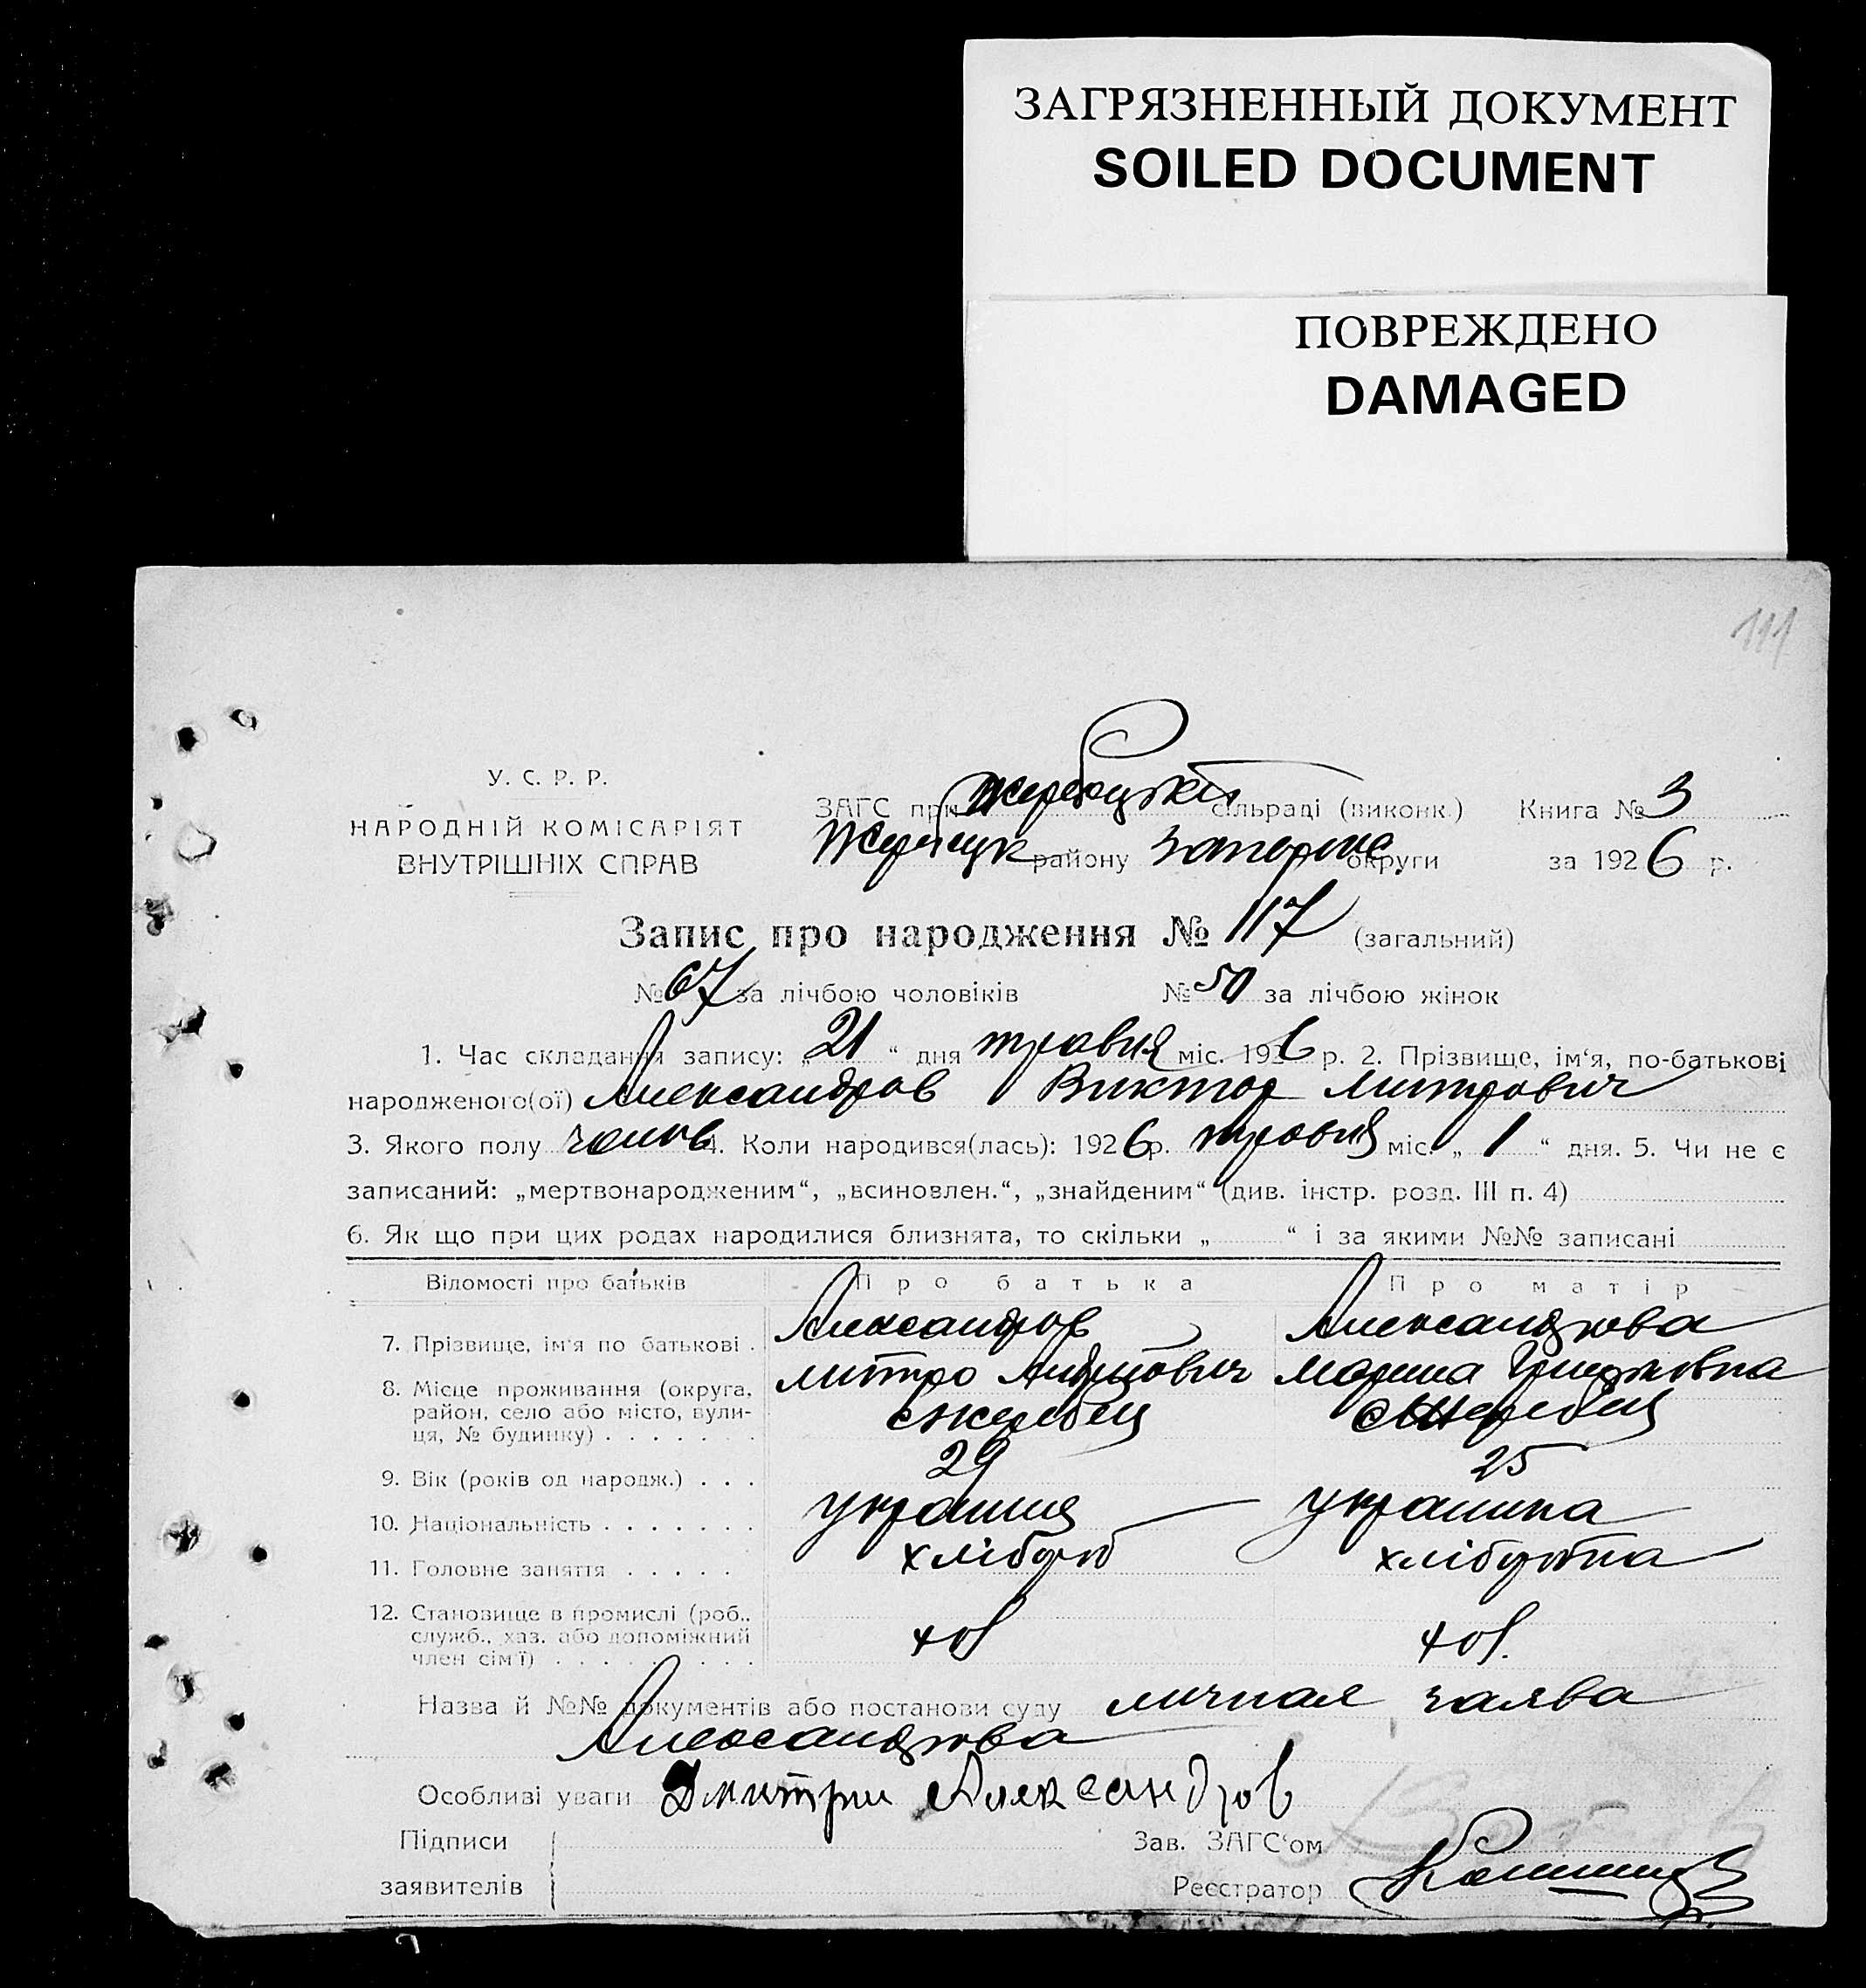 ЗАГРЯЗНЕННЫЙ ДОКУМЕНТ
SOILED DOCUMENT
ПОВРЕЖДЕНО
DAMAGED
111
У. С. Р. Р.
НАРОДНІЙ КОМІСАРІЯТ
ВНУТРІШНІХ СПРАВ
ЗАГС при сільраді (виконк.) Книга № 3
району Запоріж округи за 1926 р.
Запис про народження № 117 (загальний)
№ 67 за лічбою чоловіків № 50 за лічбою жінок
1. Час складання запису: „ 21 “ дня травня міс. 1926 р. 2. Прізвище, ім‘я, по-батькові
народженого(ої) Александров Виктор Митрович
3. Якого полу чолов 4. Коли народився(лась): 1926 р. травня міс. „ 1 “ дня. 5. Чи не є
записаний: „мертвонародженим“, „всиновлен.“, „знайденим“ (див. інстр. розд. III п. 4)
6. Як що при цих родах народилися близнята, то скільки „ “ і за якими №№ записані
Відомості про батьків Про батька Про матір
7. Прізвище, ім‘я по батькові . Александров Александрова
Митро Марина
8. Місце проживання (округа, район, село або місто, вулиця, № будинку) . . . . . . . с Жеребец с Жеребец
9. Вік (років од народж.) . . . 29 25
10. Національність . . . . . . . украинец украинка
11. Головне заняття . . . . . хлібороб
12. Становище в промислі (роб., служб., хаз. або допоміжний член сім‘ї) . . . . . . . . .
Назва й №№ документів або постанови суду личная заява
Александрова
Особливі уваги Дмитри Александров
Підписи Зав. ЗАГС‘ом
заявителів Реєстратор